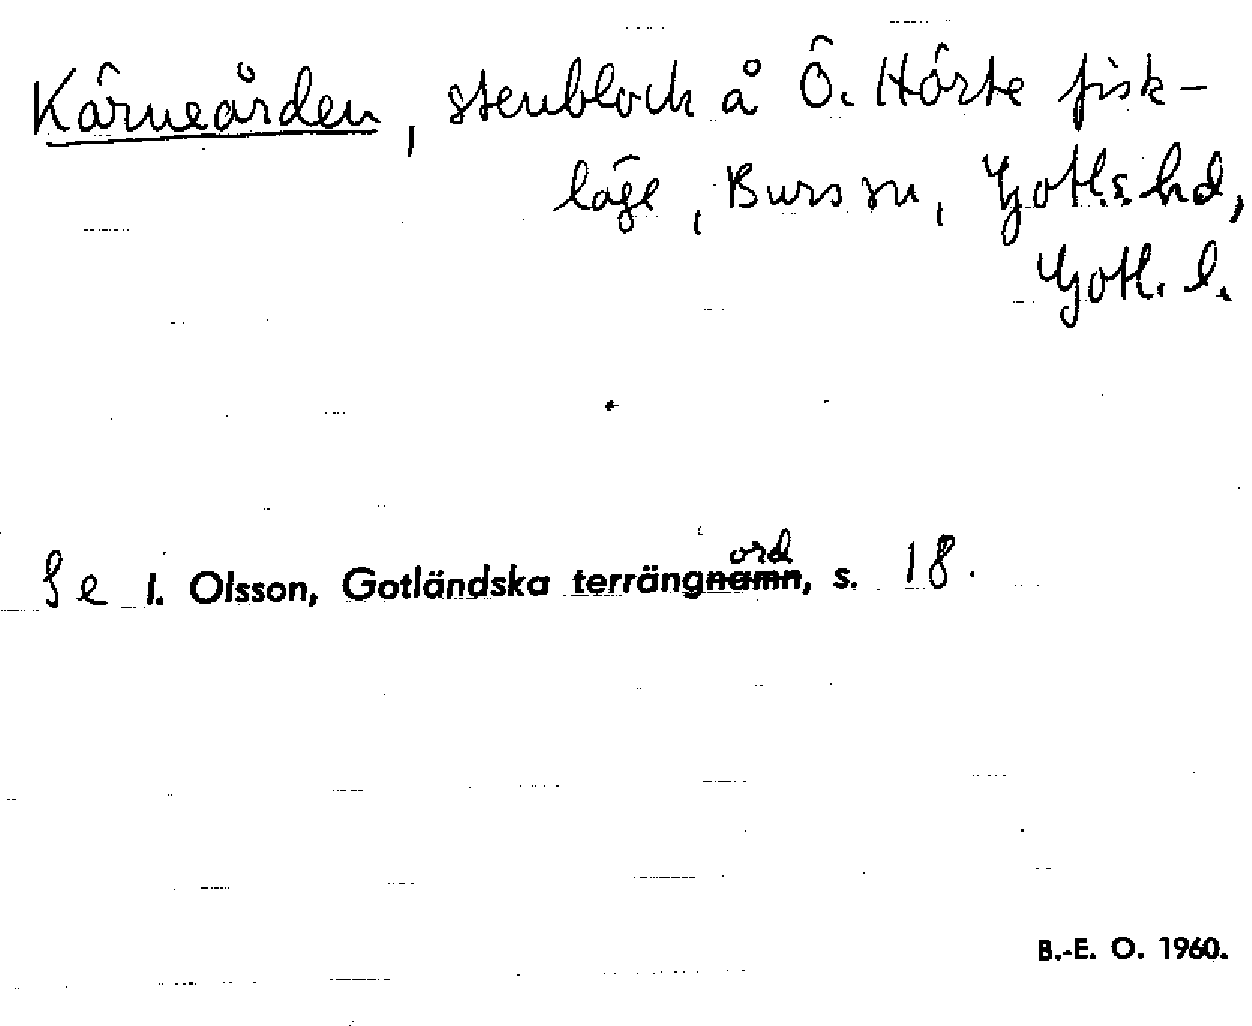 Kärneården, stenblock å Ö. Hörte fisk-
läge, Burs sn, Gotls hd,
Gotl. l.
Se I. Olsson, Gotländska terrängnamn, s. 18.
ord
B.-E. O. 1960.